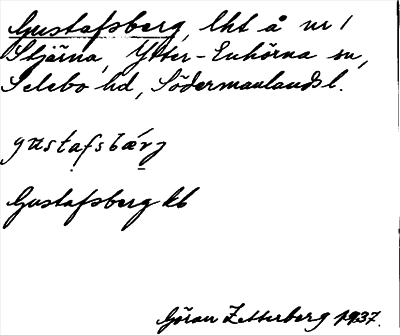 Gustafsberg, lht å nr 1
Stjärna, Ytter-Enhörna sn,
Selebo hd, Södermanlands l.
gustafsbærj
Gustafsberg kb
Göran Zetterberg 1937.